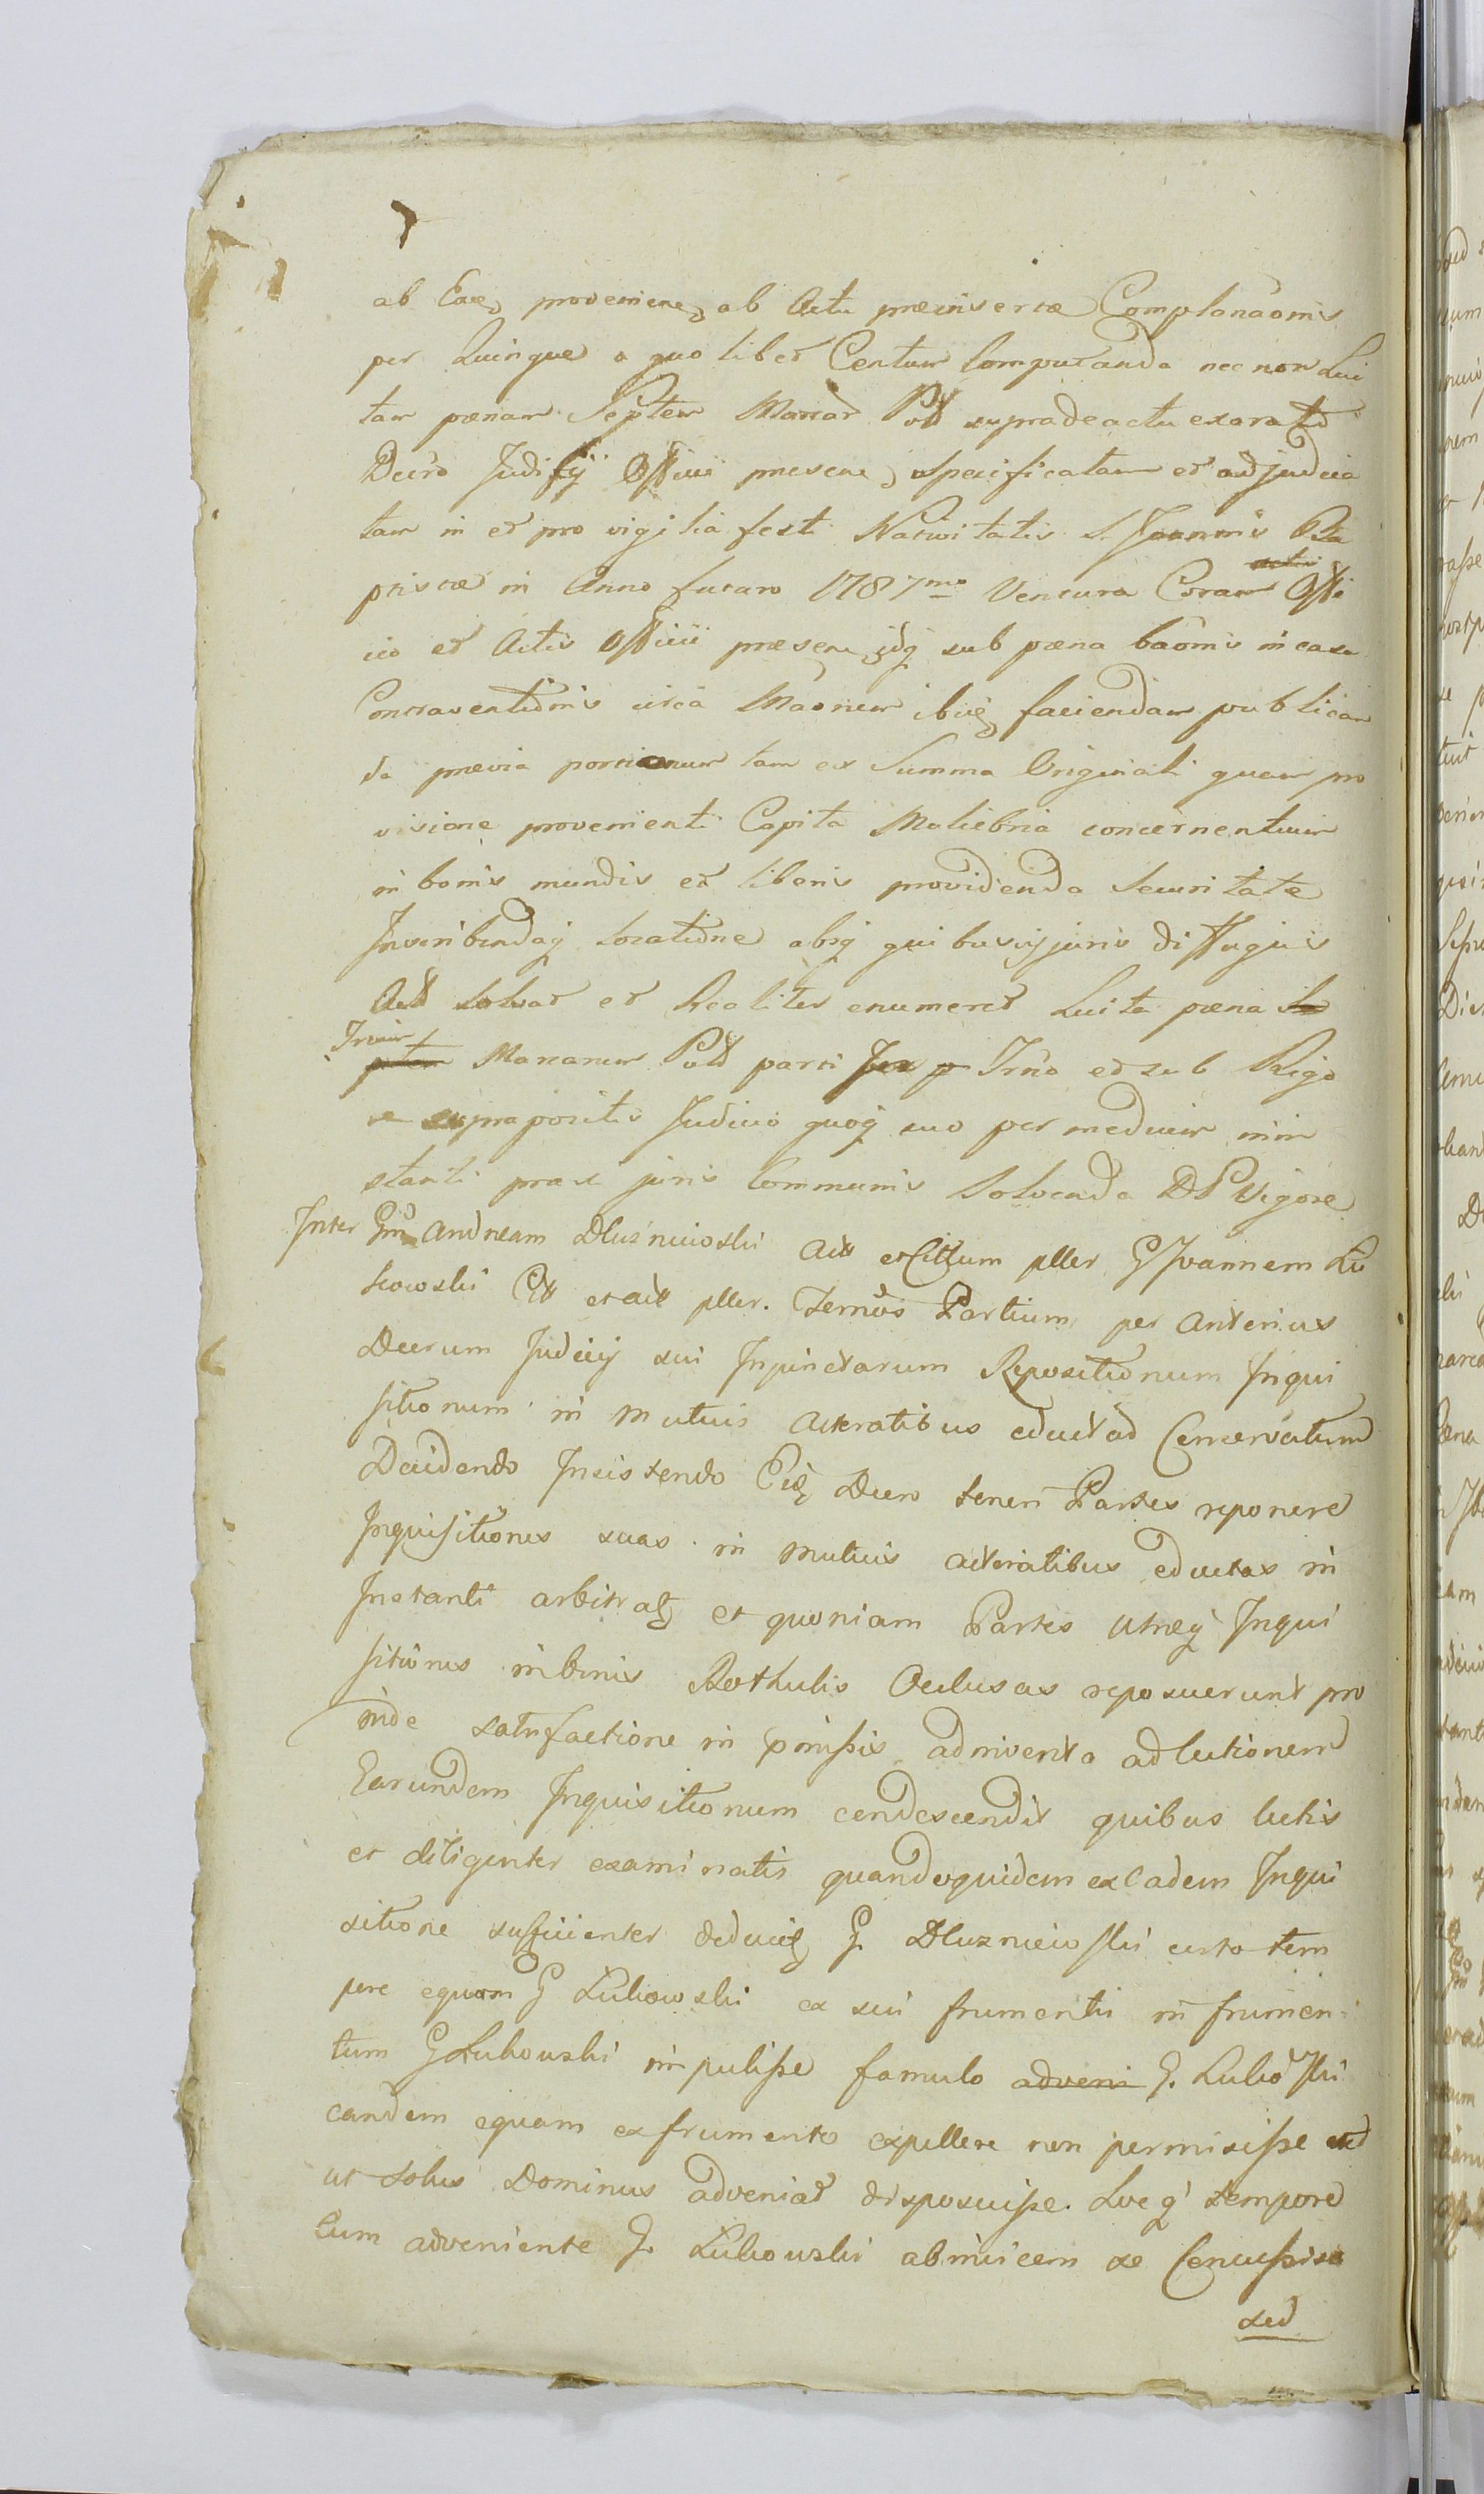 ab Eade provenien ab Actu præinsertæ Complanaonis
per Quinque a quo libet Centum Computanda nec non Lui
tam pœnam Septem Marcar Poll supradeactu exorato
Decro Judicij Officii presen specificatam et adjudica
tam in et pro vigilia festi Nativitatis S. Joannis Ba
ptistæ in Anno futuro 1787mo Ventura Coram Offi
cio et Actis Officii præsen idq sub pœna baonis in casu
Contraventionis circa Maonem ibid faciendam publican
da prævia portionum tam ex Summa Originali quam pro
visione provenienti Capita Muliebria concernentium
in bonis mundis et liberis providenda Securitate
Inscribendaq locatione absq quibusvis juris diffugiis
Act Solvat et Realiter enumeret Luita pœna
Trium Marcarum Poll parti Trno et sub Rigo
re supra positis Judicio quoq suo per medium mini
stariali præx juris Communis Solvenda DP Vigore
Inter Gm Andream Dluzniewski Act et Cittum pller G Joannem Lu
kowski Citt et act pller. Terminus Partium per Anterius
Decrum Judicij sui Injunctarum Repositionum Inqui
sitionum in mutuis Actoratibus educt ad Conservatum
Decidendo Insistendo Eid Decro teneri Partes reponere
Inquisitiones suas in mutuis actoratibus eductas in
Instanti arbitratg et quoniam Partes utræq Inqui
sitiones in binis Rothulis Oclusas reposuerunt pro
inde satisfactione in pmissis adinventa ad lectionem
Earundem Inquisitionum condescendit quibus lectis
et diligenter examinatis quandoquidem ex Eadem Inqui
sitione sufficienter deducitg G. Dluzniewski certo tem
pore equam G Lukowski ex sui frumentis in frumen
tum G Lukowski impulisse famulo adveni G. Lukowski
eandem equam ex frumento expellere non permisisse sed
ut Solus Dominus adveniat disposuisse. Quo q tempore
Cum adveniente G. Lukowski abinvicem se Concussisse
sed